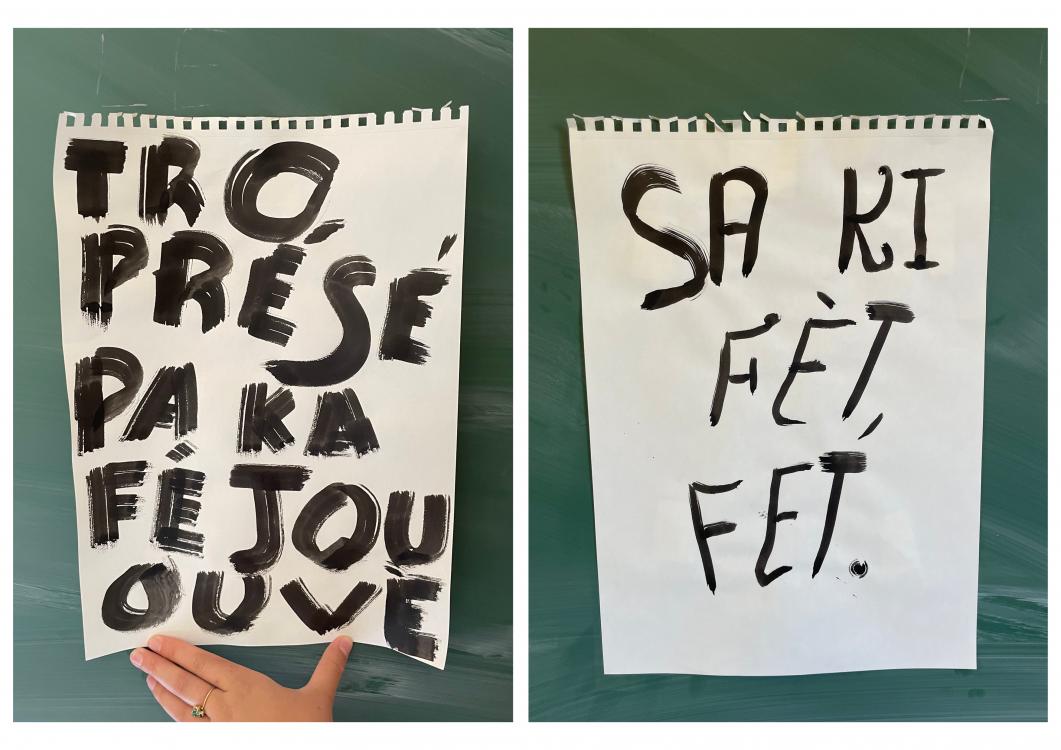 TRO
PRÉSÉ
PA KA
FÉ JOU
OUVÈ
SA KI
FÈT,
FET.